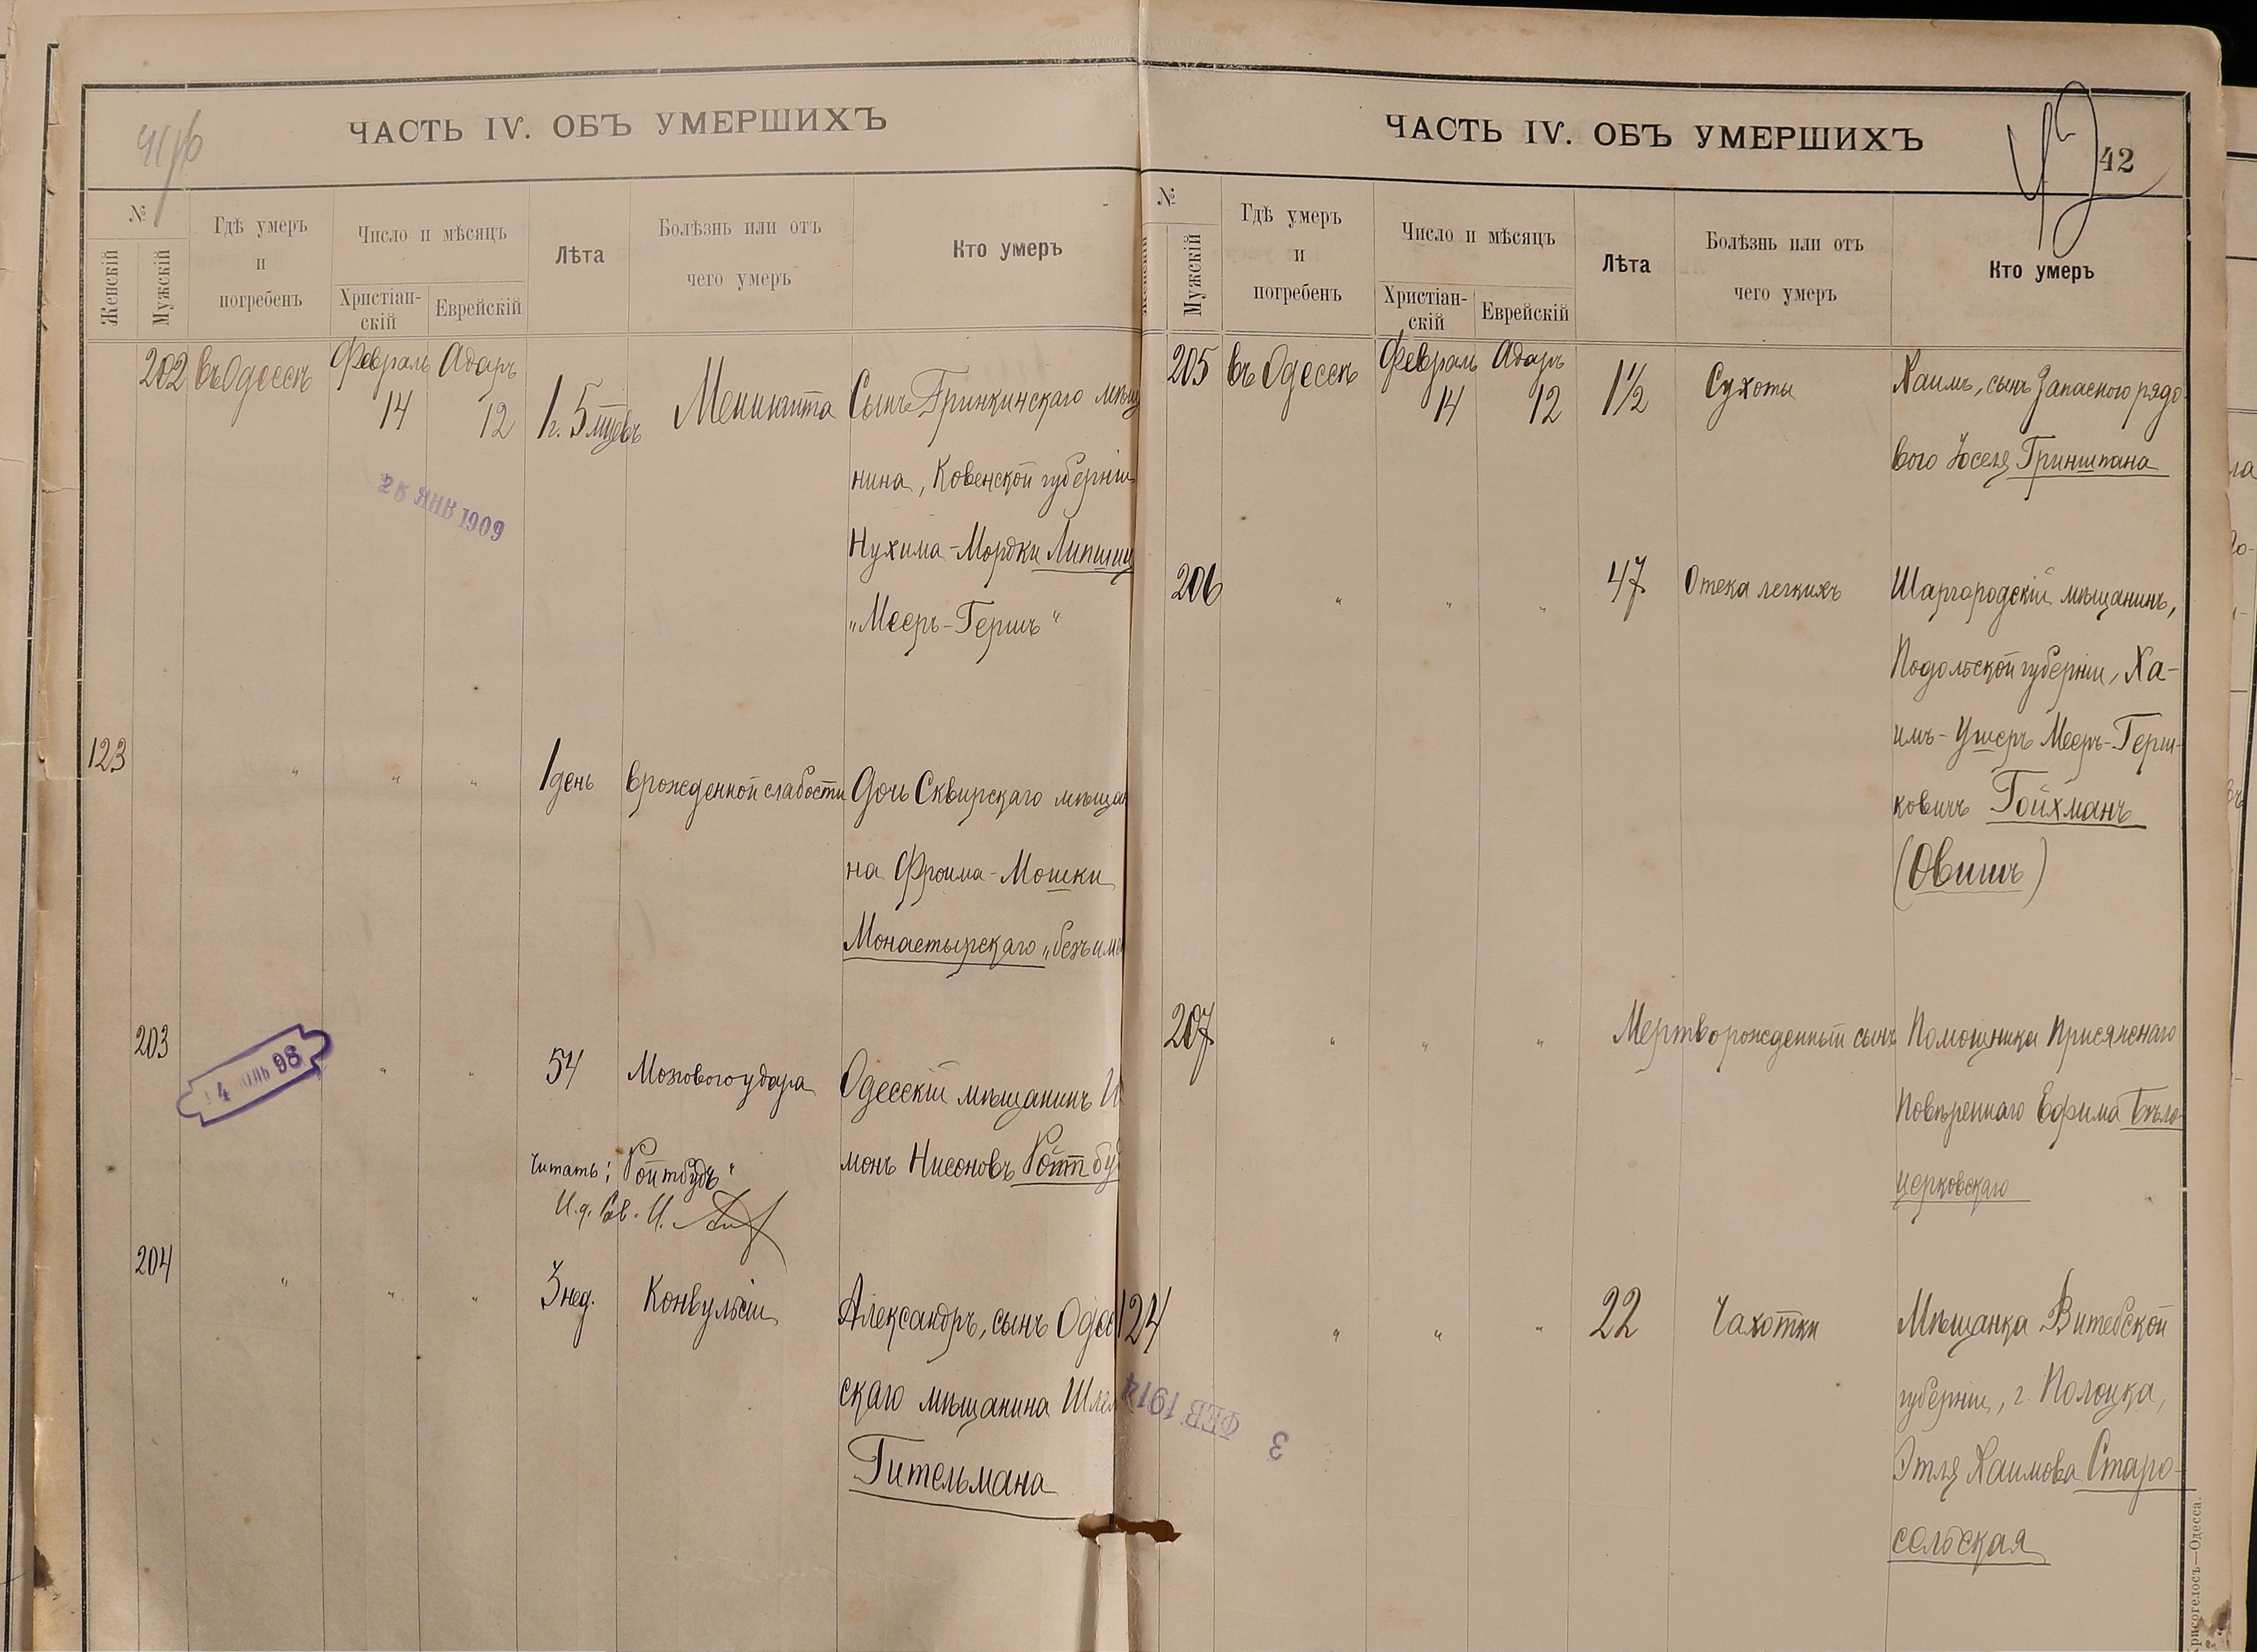 41об
ЧАСТЬ IV. ОБЪ УМЕРШИХЪ
№
Женскій
Мужскій
Гдѣ умеръ
и
погребенъ
Число и мѣсяцъ
Христіан-
скій
Еврейскій
Лѣта
Болѣзнь или отъ
чего умеръ
Кто умеръ
202 въ Одессѣ Февраль 14 Адаръ 12 1 г. 5 мѣсцевъ Менингита Сынъ Гринкинскаго мѣщ
нина, Ковенской губерніи
Нухима-Мордки Липшиц
„Мееръ-Гершъ“
25 ЯНВ 1909
123 „ „ „ 1 день врожденной слабости Дочь Сквирскаго мѣщан
на Фроима-Мошки
Монастырскаго „безъ име
203 „ „ 54 Мозгового удара Одесскій мѣщанинъ И
монъ Нисоновъ Ройтбу
4 98
Читать: „Ройтбудъ“
И.д. Рав. И.
204 „ „ „ 3 нед. Конвульсіи Александръ, сынъ Одес
скаго мѣщанина Шле
Гительмана
ЧАСТЬ IV. ОБЪ УМЕРШИХЪ
42
42
№
Женскій
Мужскій
Гдѣ умеръ
и
погребенъ
Число и мѣсяцъ
Христіан-
скій
Еврейскій
Лѣта
Болѣзнь или отъ
чего умеръ
Кто умеръ
205 въ Одессѣ Февраль 14 Адаръ 12 1½ Сухоты Хаимъ, сынъ Запасного рядо-
вого Іоселя Гриншпана
206 „ „ „ 47 Отека легкихъ Шаргородскій мѣщанинъ,
Подольской губерніи, Ха-
имъ-Ушеръ Мееръ-Герш-
ковичъ Гойхманъ
(Овшіъ)
207 „ „ „ Мертворожденный сынъ Помощника Присяжнаго
Повѣреннаго Ефима Бѣло-
церковскаго
124 „ „ „ 22 Чахотки Мѣщанка Витебской
губерніи, г. Полоцка,
Этля Хаимова Старо-
сельская
3 ФЕВ 1914
Хрисогелосъ—Одесса.